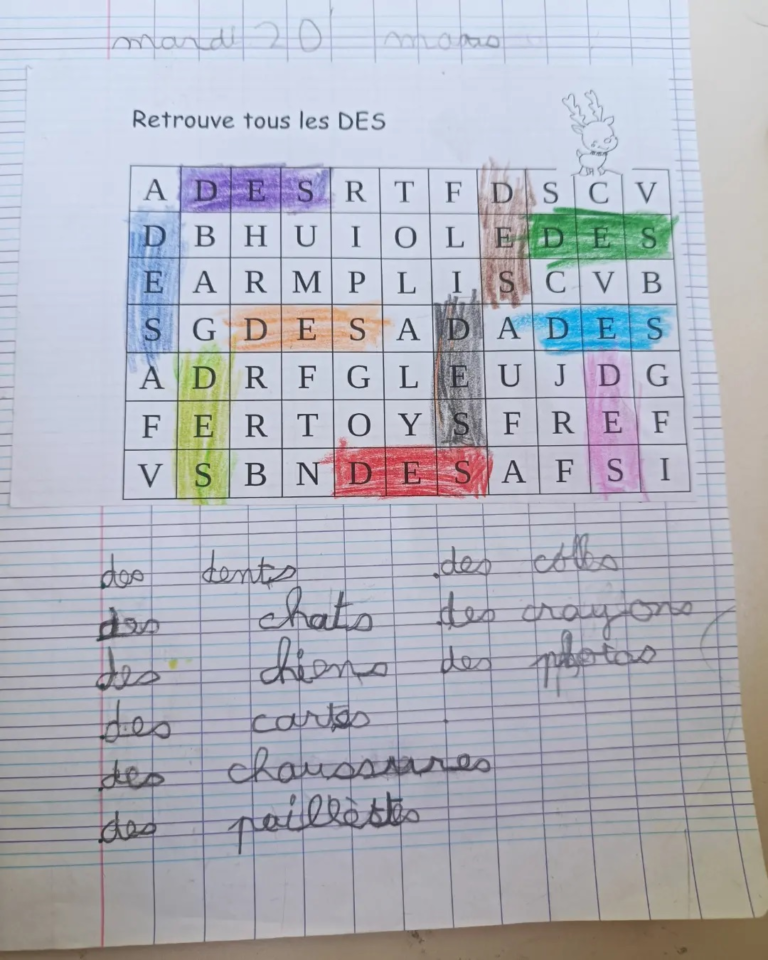 mardi 20 mars
Retrouve tous les DES
A D E S R T F D S C V
D B H U I O L E D E S
E A R M P L I S C V B
S G D E S A D A D E S
A D R F G L E U J D G
F E R T O Y S F R E F
V S B N D E S A F S I
des dents des colles
des chats des crayons
des chiens des photos
des cartes
des chaussures
des paillettes